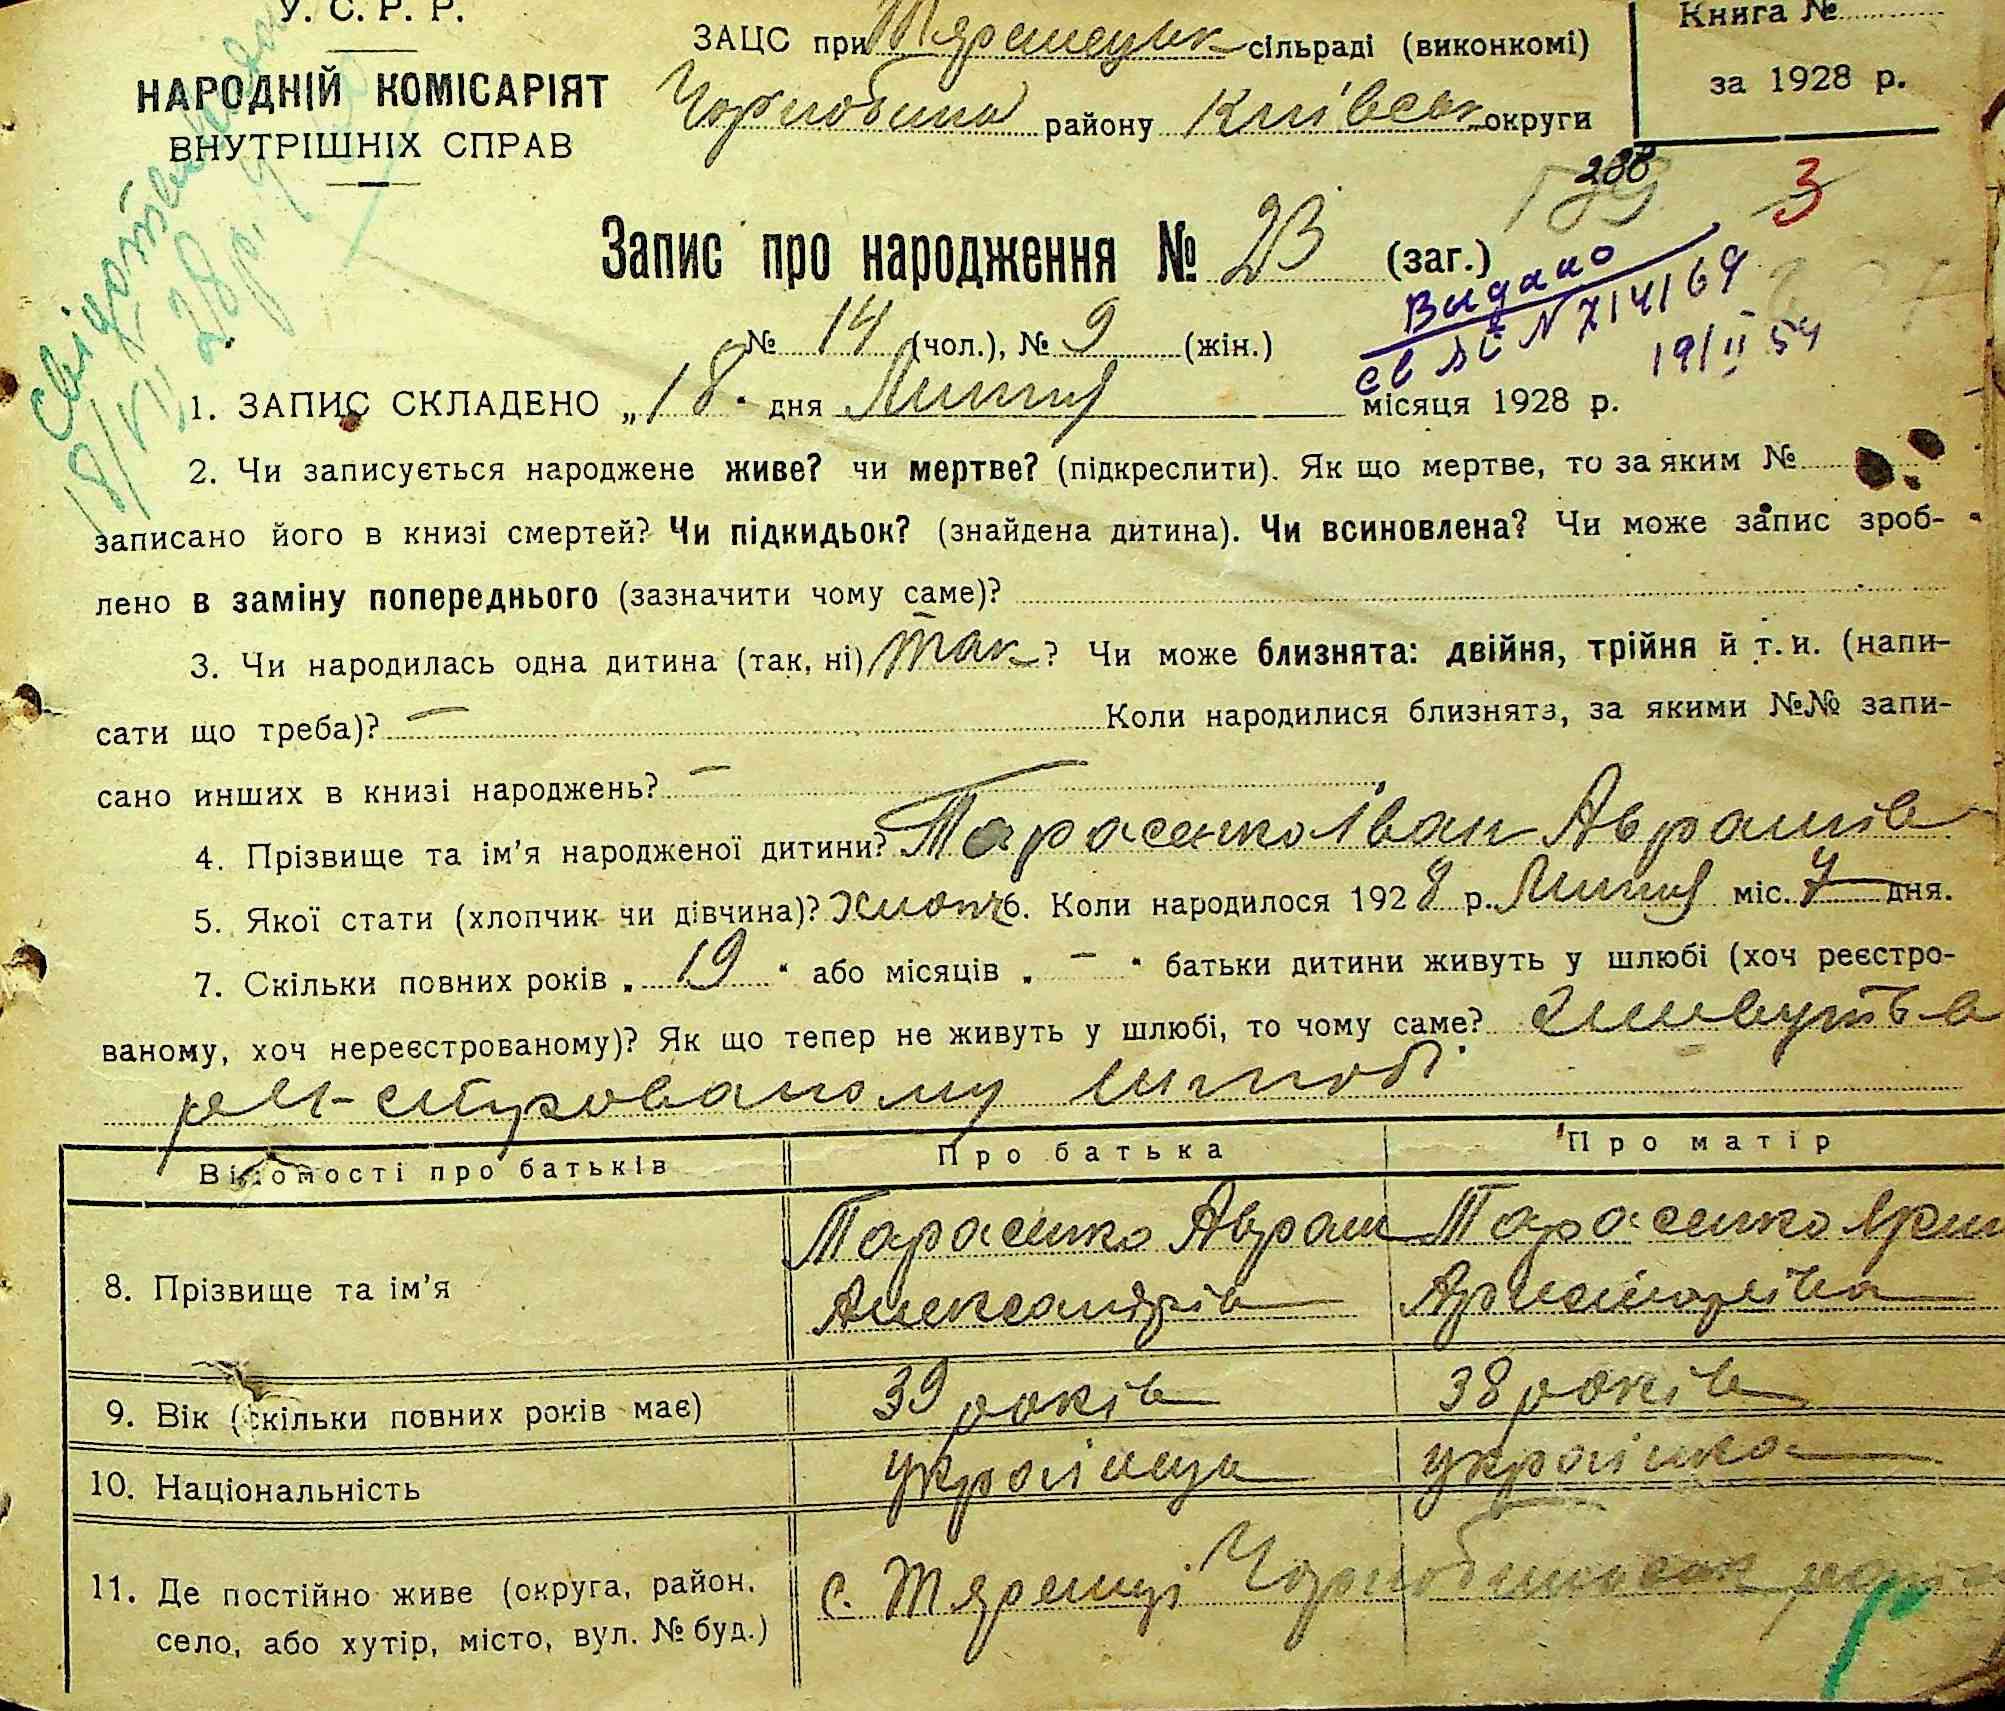 У. С. Р. Р.
НАРОДНІЙ КОМІСАРІЯТ
ВНУТРІШНІХ СПРАВ
ЗАЦС при Теремецьк сільраді (виконкомі)
Чорнобил району Київськ округи
Книга №
за 1928 р.
288
3
Запис про народження № 23 (заг.)
№ 14 (чол.), № 9 (жін.)
Выдано
№ 714169
19/II 54
1. ЗАПИС СКЛАДЕНО „18 дня Липня місяця 1928 р.
2. Чи записується народжене живе? чи мертве? (підкреслити). Як що мертве, то за яким №
записано його в книзі смертей? Чи підкидьок? (знайдена дитина). Чи всиновлена? Чи може запис зроб-
лено в заміну попереднього (зазначити чому саме)?
3. Чи народилась одна дитина (так, ні) так? Чи може близнята: двійня, трійня й т. и. (напи-
сати що треба)? — Коли народилися близнята, за якими №№ запи-
сано инших в книзі народжень? —
4. Прізвище та ім'я народженої дитини? Тарасенко Іван Аврамів
5. Якої стати (хлопчик чи дівчина)? Хлопч 6. Коли народилося 1928 р. Липня міс. 7 дня.
7. Скільки повних років „ 19 “ або місяців „ — “ батьки дитини живуть у шлюбі (хоч реєстро-
ваному, хоч нереєстрованому)? Як що тепер не живуть у шлюбі, то чому саме? живуть в
реєстрованому шлюбі.
Відомості про батьків Про батька Про матір
Тарасенко Аврам Тарасенко
8. Прізвище та ім'я
Александрів
9. Вік (скільки повних років має) 39 років 38 років
10. Національність українець українка
11. Де постійно живе (округа, район,
село, або хутір, місто, вул. № буд.)
с. Теремці Чорнобильськ